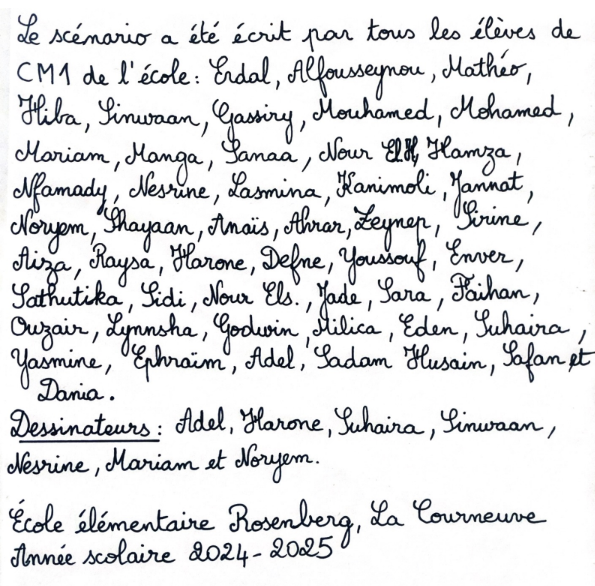 Le scénario a été écrit par tous les élèves de
CM1 de l'école : Erdal, Alfousseynou, Mathéo,
Hiba, Sinwaan, Gassiry, Mouhamed, Mohamed,
Mariam, Manga, Sanaa, Nour El H, Hamza,
Nfamady, Nesrine, Lasmina, Kanimoli, Jannat,
Noryem, Shayaan, Anaïs, Ahrar, Zeynep, Sirine,
Aiza, Raysa, Harone, Defne, Youssouf, Enver,
Sathutika, Sidi, Nour Els., Jade, Sara, Faihan,
Ouzair, Lynnsha, Godwin, Milica, Eden, Suhaira,
Yasmine, Ephraïm, Adel, Sadam Husain, Safan et
Dania.
Dessinateurs : Adel, Harone, Suhaira, Sinwaan,
Nesrine, Mariam et Noryem.
École élémentaire Rosenberg, La Courneuve
Année scolaire 2024-2025